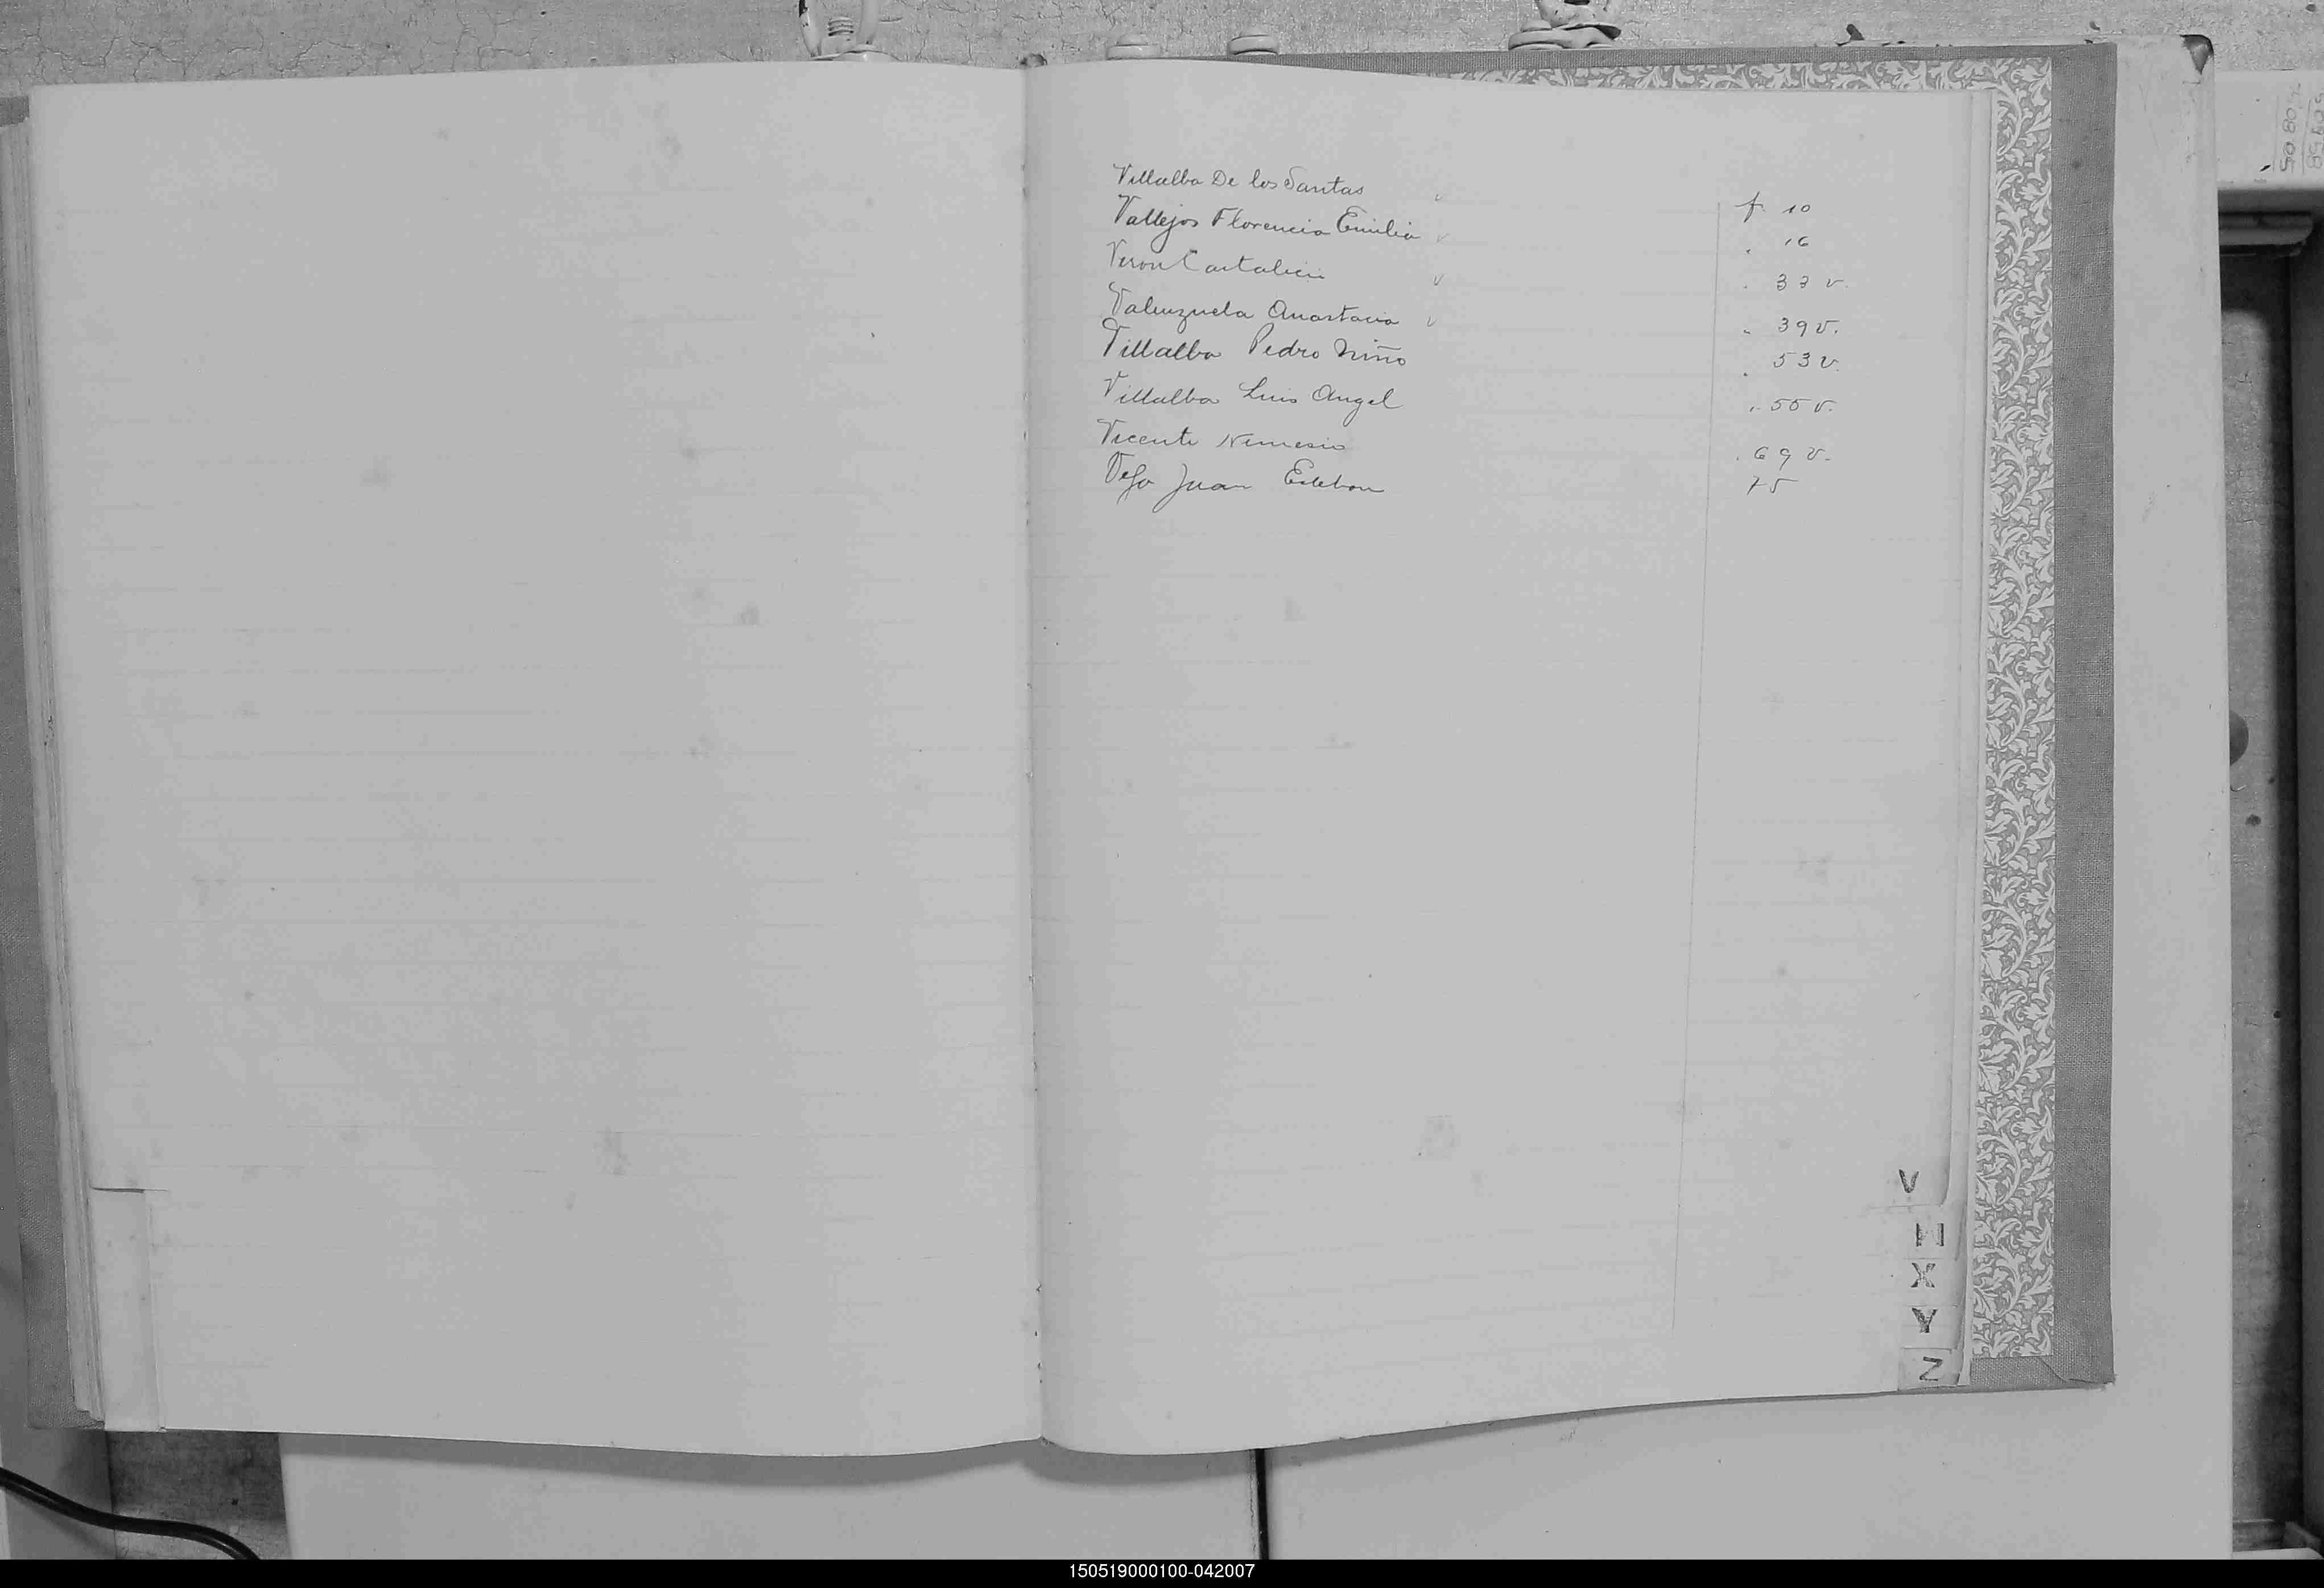 Villalba De los Santas f. 10
Vallejos Florencia Emilia " 16
Veron Cartalicia " 33 v.
Valenzuela Anastacia " 39 v.
Villalba Pedro Niño " 53 v.
Villalba Luis Angel " 55 v.
Vicente Nemesio " 69 v.
Vega Juan Esteban 75
V
W
X
Y
Z
150519000100-042007